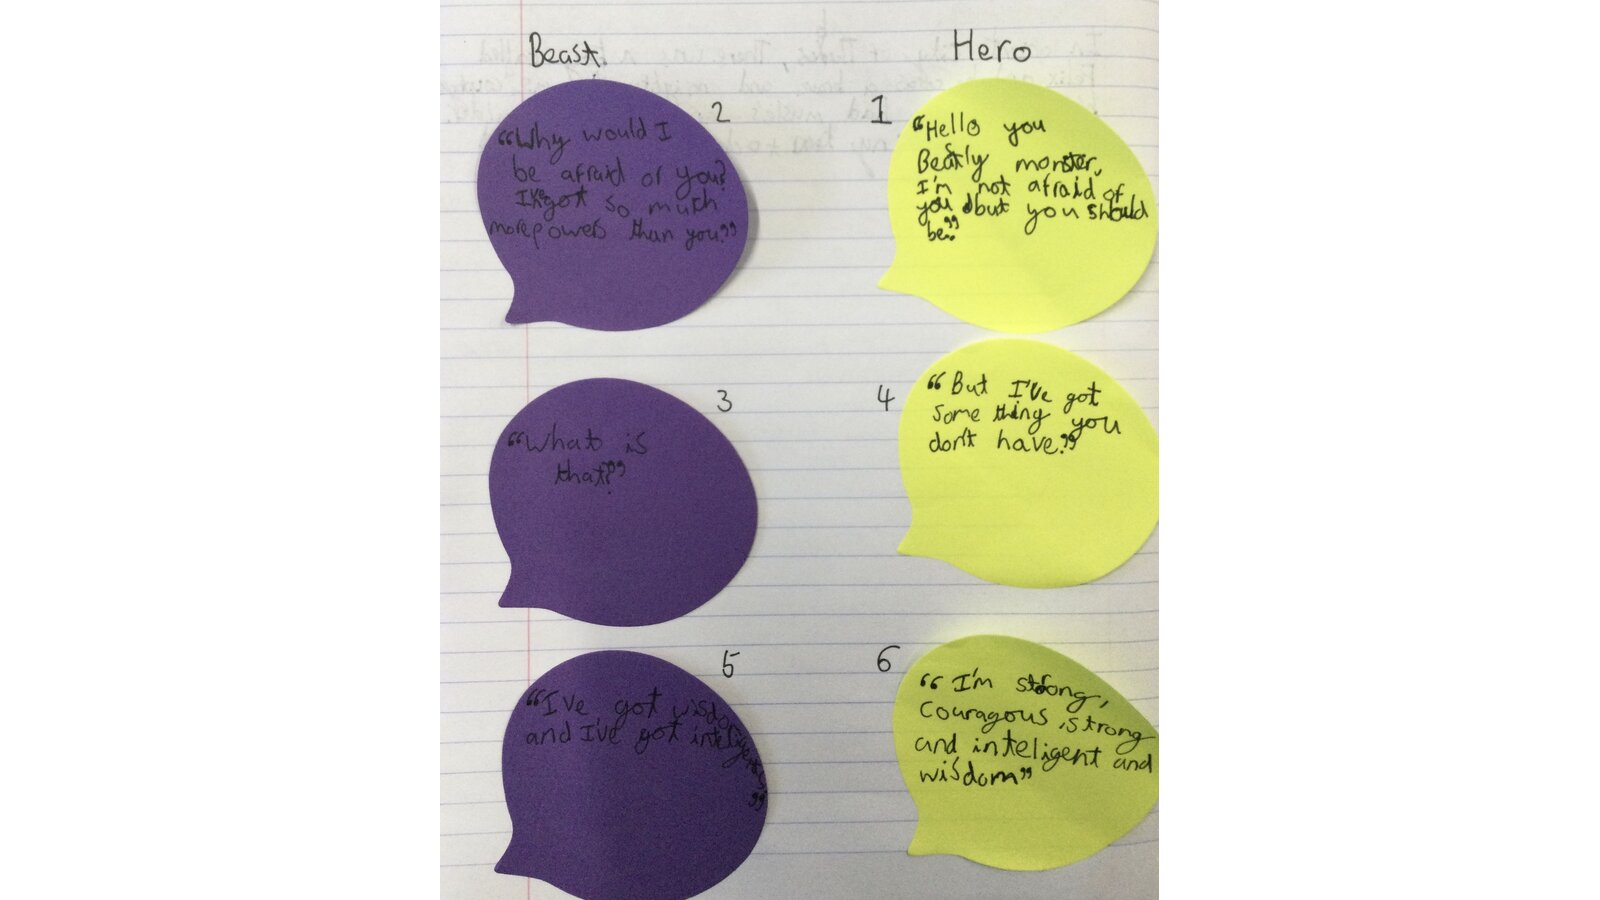 Beast.
Hero
1
“Hello you
Beastly monster,
I'm not afraid of
you but you should
be.”
2
“Why would I
be afraid of you?
I've got so much
more powers than you.”
3
“What is
that?”
4
“But I've got
some thing you
don't have.”
5
“I've got wisdom
and I've got
”
6
“I'm strong,
Couragous, strong
and inteligent and
wisdom”